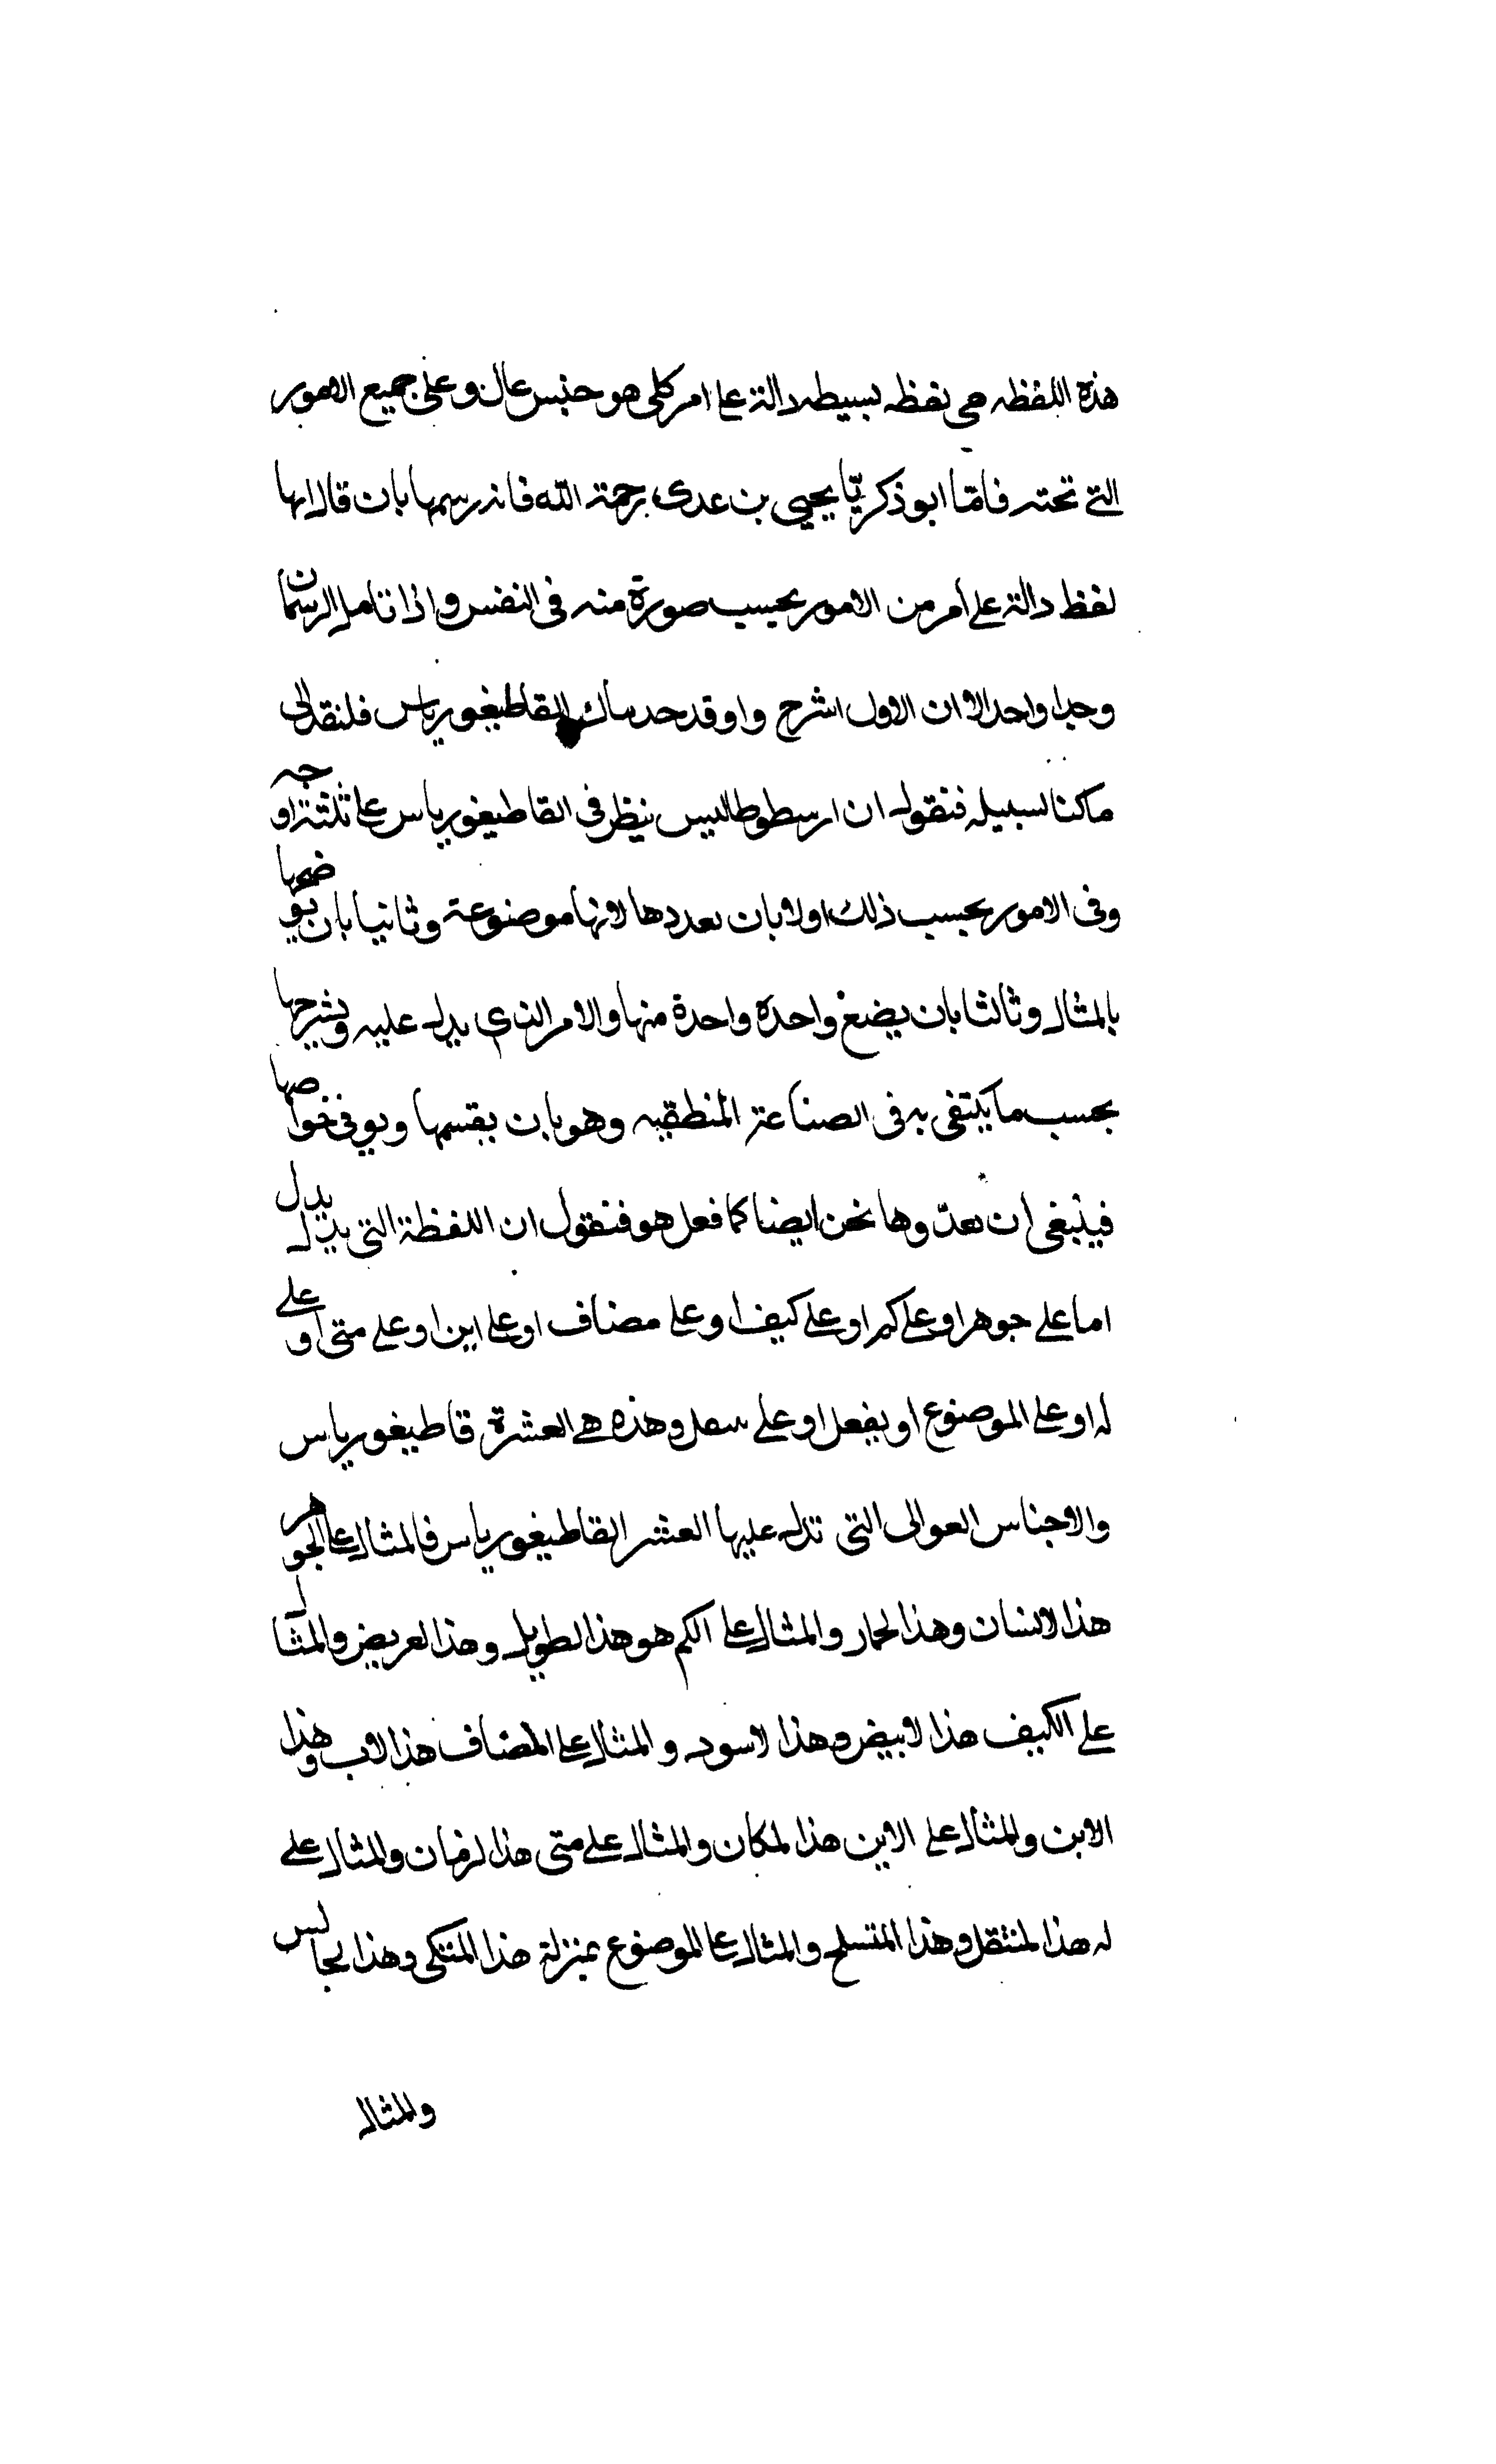 هذه اللفظه هى لفظه بسيطه دالة على امر كلى هو جنس عال وعلى جميع الامور
التى تحته فامّا ابو ذكريّا يحيى بن عدى رحمة الله فانه رسمها بان قال انها
لفظ دالة على امر من الامور بحسب صورة منه فى النفس واذا تامل الرسمان
وجدا واحدا الا ان الاول اشرح واوقد حد القاطيغورياس فلنقد الى
ما كنا لسبيله فنقول ان ارسطوطاليس ينظر فى القاطيغورياس على ثلثة اوجه
وفى الامور بحسب ذلك اولا بان يعددها لانها موضوعة وثانيا بان يوضحها
بالمثال وثالثا بان يضع واحدة واحدة منها والامر الذى يدل عليه ويشرحها
بحسب ما يكتفى به فى الصناعة المنطقيه وهو بان يقسمها ويوفى خواصها
فينبغى ان نعدّوها نحن ايضا كما فعل هو فنقول ان اللفظة التى يدل يدل
اما على جوهر او على كم او على كيف او على مضاف او على اين او على متى او على
له او على الموضوع او يفعل او على ينفعل وهذه هى العشرة قاطيغورياس
والاجناس العوالى التى تدل عليها العشر القاطيغورياس فالمثال على الجوهر
هذا لانسان وهذا لحمار والمثال على الكم هو هذا لطويل وهذا لعريض والمثال
على الكيف هذا لابيض وهذا لاسود والمثال على المضاف هذا لاب وهذا
الابن والمثال على الاين هذا لمكان والمثال على متى هذا لزمان والمثال على
له هذا لمنتقل وهذا المتسلح والمثال على الموضوع بمنزلة هذا المتكى وهذا لجالس
والمثال